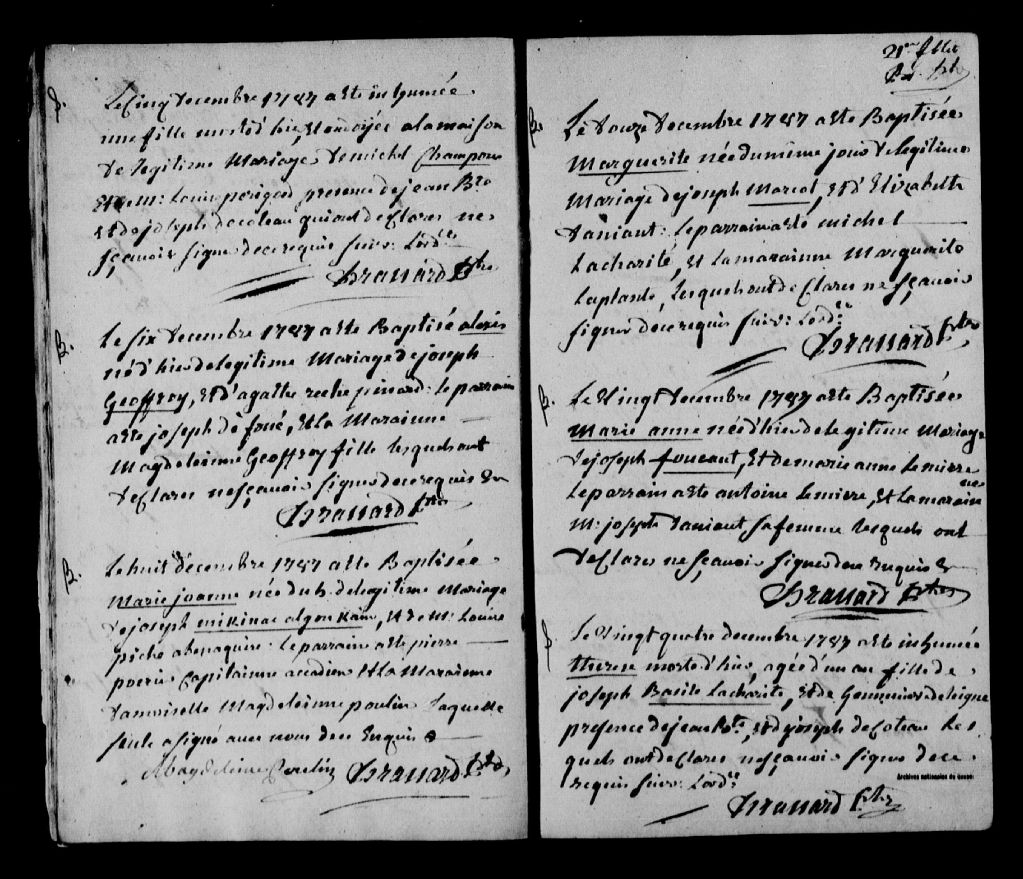 S.
Le Cinq Decembre 1757 a ete inhumée
une fille morte d'hier, et ondoyée a la maison
de legitime Mariage de michel Champou
et de M: Louise perigord presence de jean Bte
et de joseph decoteau qui ont declarer ne
sçavoir signer de ce requis suiv: L'ordce
Brassard Ptre
B.
Le six Decembre 1757 a ete Baptisé alexis
né d'hier de legitime Mariage de joseph
Geoffroy, et d'agathe pinard: le parrain
a ete joseph et La Marainne
Magdeleinne Geoffroy fille lesquels ont
declarer ne sçavoir signer de ce requis &
Brassard Ptre
B.
Le huit decembre 1757 a ete Baptisée
Marie joanne née du 6. de legitime Mariage
de joseph mikinac algonkain, et de M: Louise
piché abenaquise: le parrain a ete pierre
poerié Capitainne accadien et La Marainne
Damoiselle Magdeleinne poulin Laquelle
seule a signé avec nous de ce Enquis
Magdeleine Poulin Brassard Ptre
21me fllet
Ptre
B.
Le Douze Decembre 1757 a ete Baptisée
Marguerite née du même jour de legitime
Mariage de joseph Marcot, et d'Elizabeth
Daniaut: le parrain a ete michel
Lacharité, et La marainne Marguerite
Laplante, lesquels ont declarer ne sçavoir
signer de ce requis suiv: L'ordce
Brassard Ptre
B.
Le Vingt Decembre 1757 a ete Baptisée
Marie anne née d'hier de legitime Mariage
de joseph foucaut, et de marie anne Lemierre
Le parrain a ete antoine Lemiere, et La maraine
M: joseph Daniaut sa femme lesquels ont
declarer ne sçavoir signer de ce Enquis &
Brassard Ptre
S
Le Vingt quatre decembre 1757 a ete inhumée
therese morte d'hier, agée d'un an fille de
joseph Basile Lacharité, et de
presence de jean Bte, et de joseph decoteau les
quels ont declarer ne sçavoir signer de ce
requis suiv: L'ordce
Archives nationales du Québec
Brassard Ptre